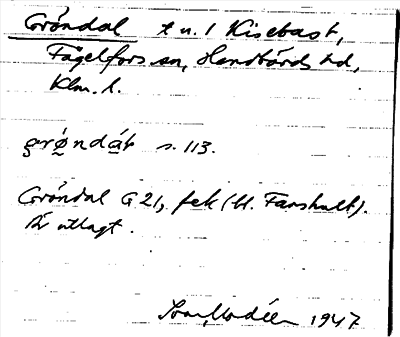 Gröndal t u. 1 Kisebast,
Fågelfors sn, Handbörds hd,
Klm. l.
grö́ndát s. 113.
Gröndal G 21, fek (bl. Farshult).
Är utlagt.
1947